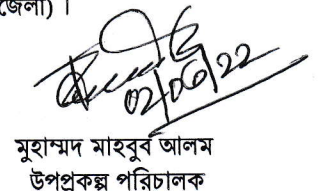 জেলা)।
02/06/22
মুহাম্মদ মাহবুব আলম
উপপ্রকল্প পরিচালক